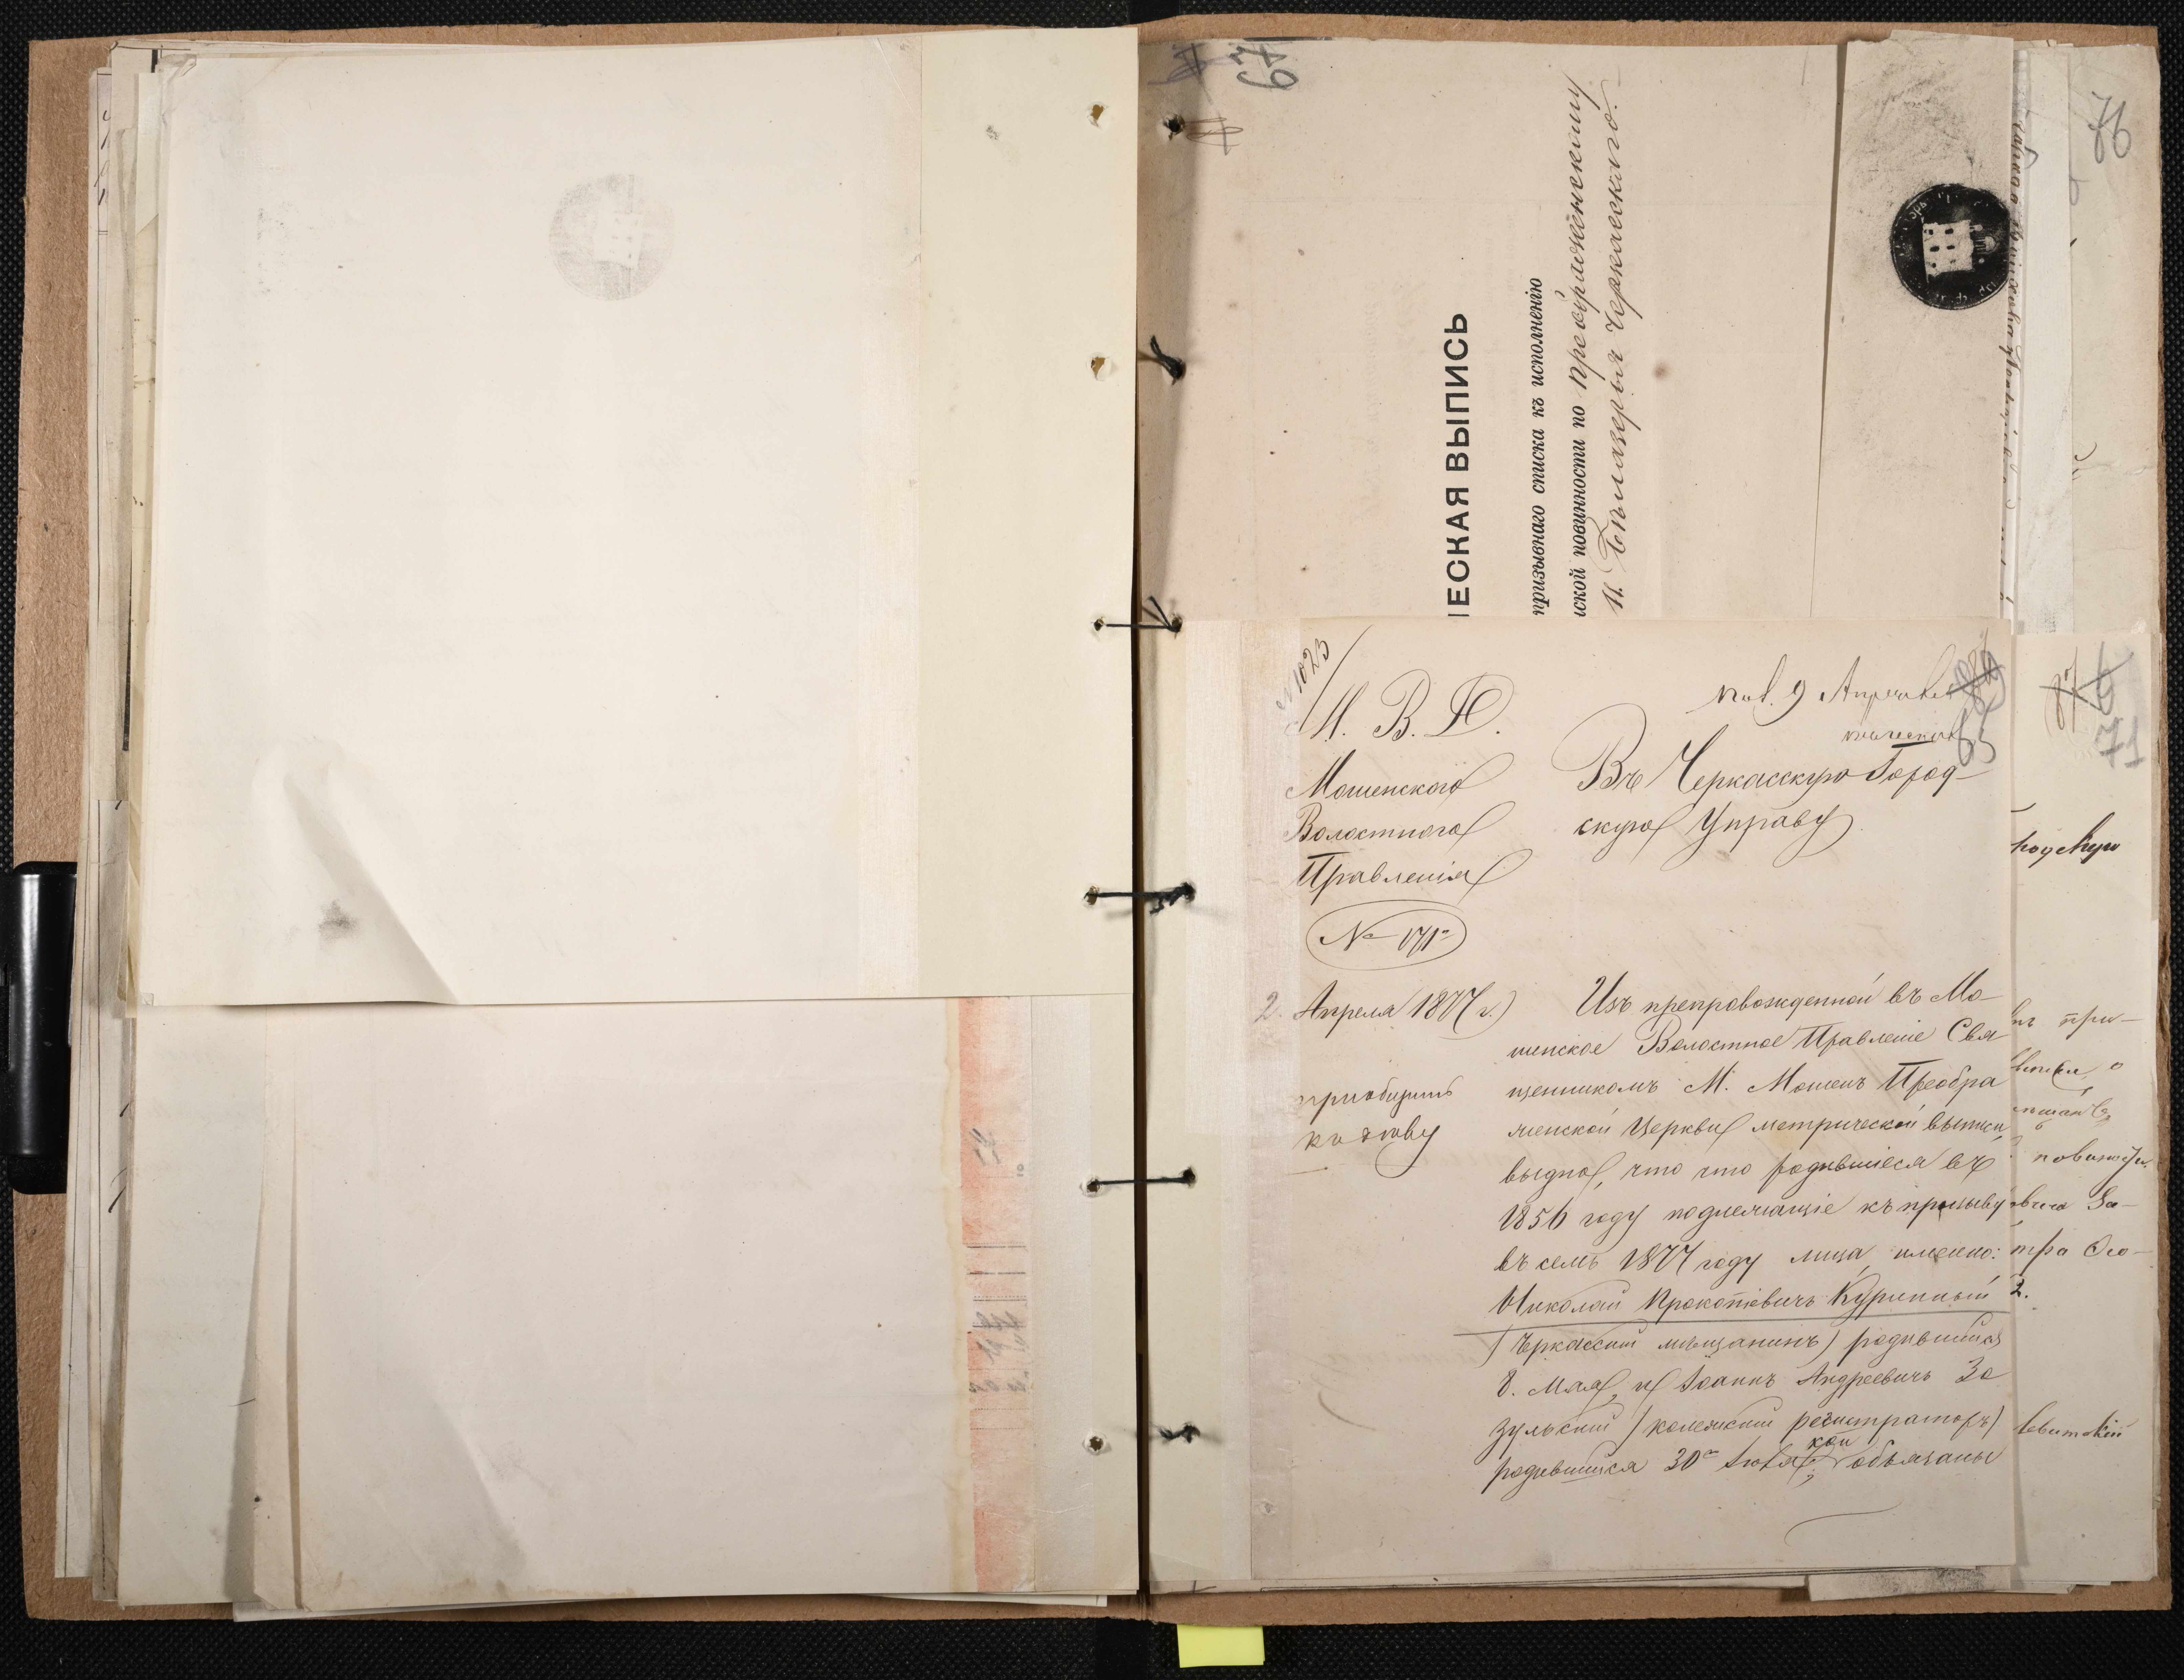 67
76
ЕСКАЯ ВЫПИСЬ
призывнаго списка къ исполненію
ской повинности по Преображенскому
Черкасскаго.
№ 1023
М. В. Д.
Мошенскаго
Волостнаго
Правленія
№ 171
2. Апреля 1877 г.
приобщить
къ дѣлу
пол. 9 Апреля
65
Въ Черкасскую Город-
скую Управу
Изъ препровожденной въ Мо-
шенское Волостное Правленіе Свя
щенникомъ М. Мошенъ Преобра
женской Церкви метрической выписи,
выдно, что что родившіеся въ
1856 году подлежащіе къ призыву
въ семъ 1877 году лица, именно:
Николай Прокопіевичъ Куринный
(Черкаскій мѣщанинъ) родившійся
8. Мая, и Іоаннъ Андреевичъ Зо
зульский (колежский регистраторъ)
родившийся 30го Іюля; кои обьязаны
71
родскую
при-
повинности
тра Осо-
2.